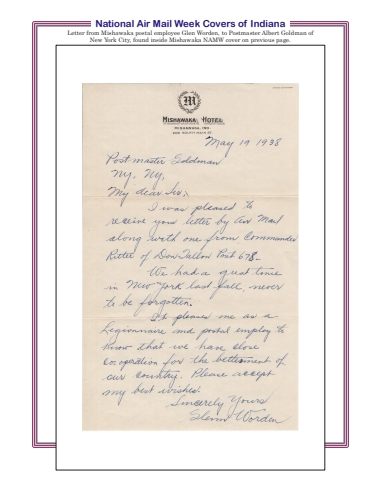 National Air Mail Week Covers of Indiana
Letter from Mishawaka postal employee Glen Worden, to Postmaster Albert Goldman of
New York City, found inside Mishawaka NAMW cover on previous page.
M
MISHAWAKA HOTEL
MISHAWAKA, IND.
May 19 1938
Postmaster Goldman
Ny, Ny,
My dear Sir;
I was pleased to
receive your letter by Air Mail
along with one from Commander
of Don Tallon Post 678.
We had a great time
in New York last fall, never
to be forgotten.
It pleases me as a
Legionnaire and postal employ to
know that we have close
cooperation for the betterment of
our country. Please accept
my best wishes.
Sincerely Yours
Glenn Worden